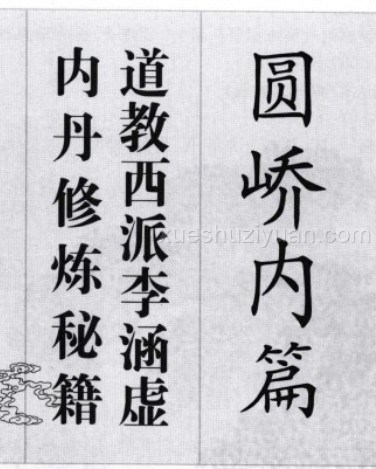 圆峤内篇
道教西派李涵虚
内丹修炼秘籍
xueshuziyuan.com